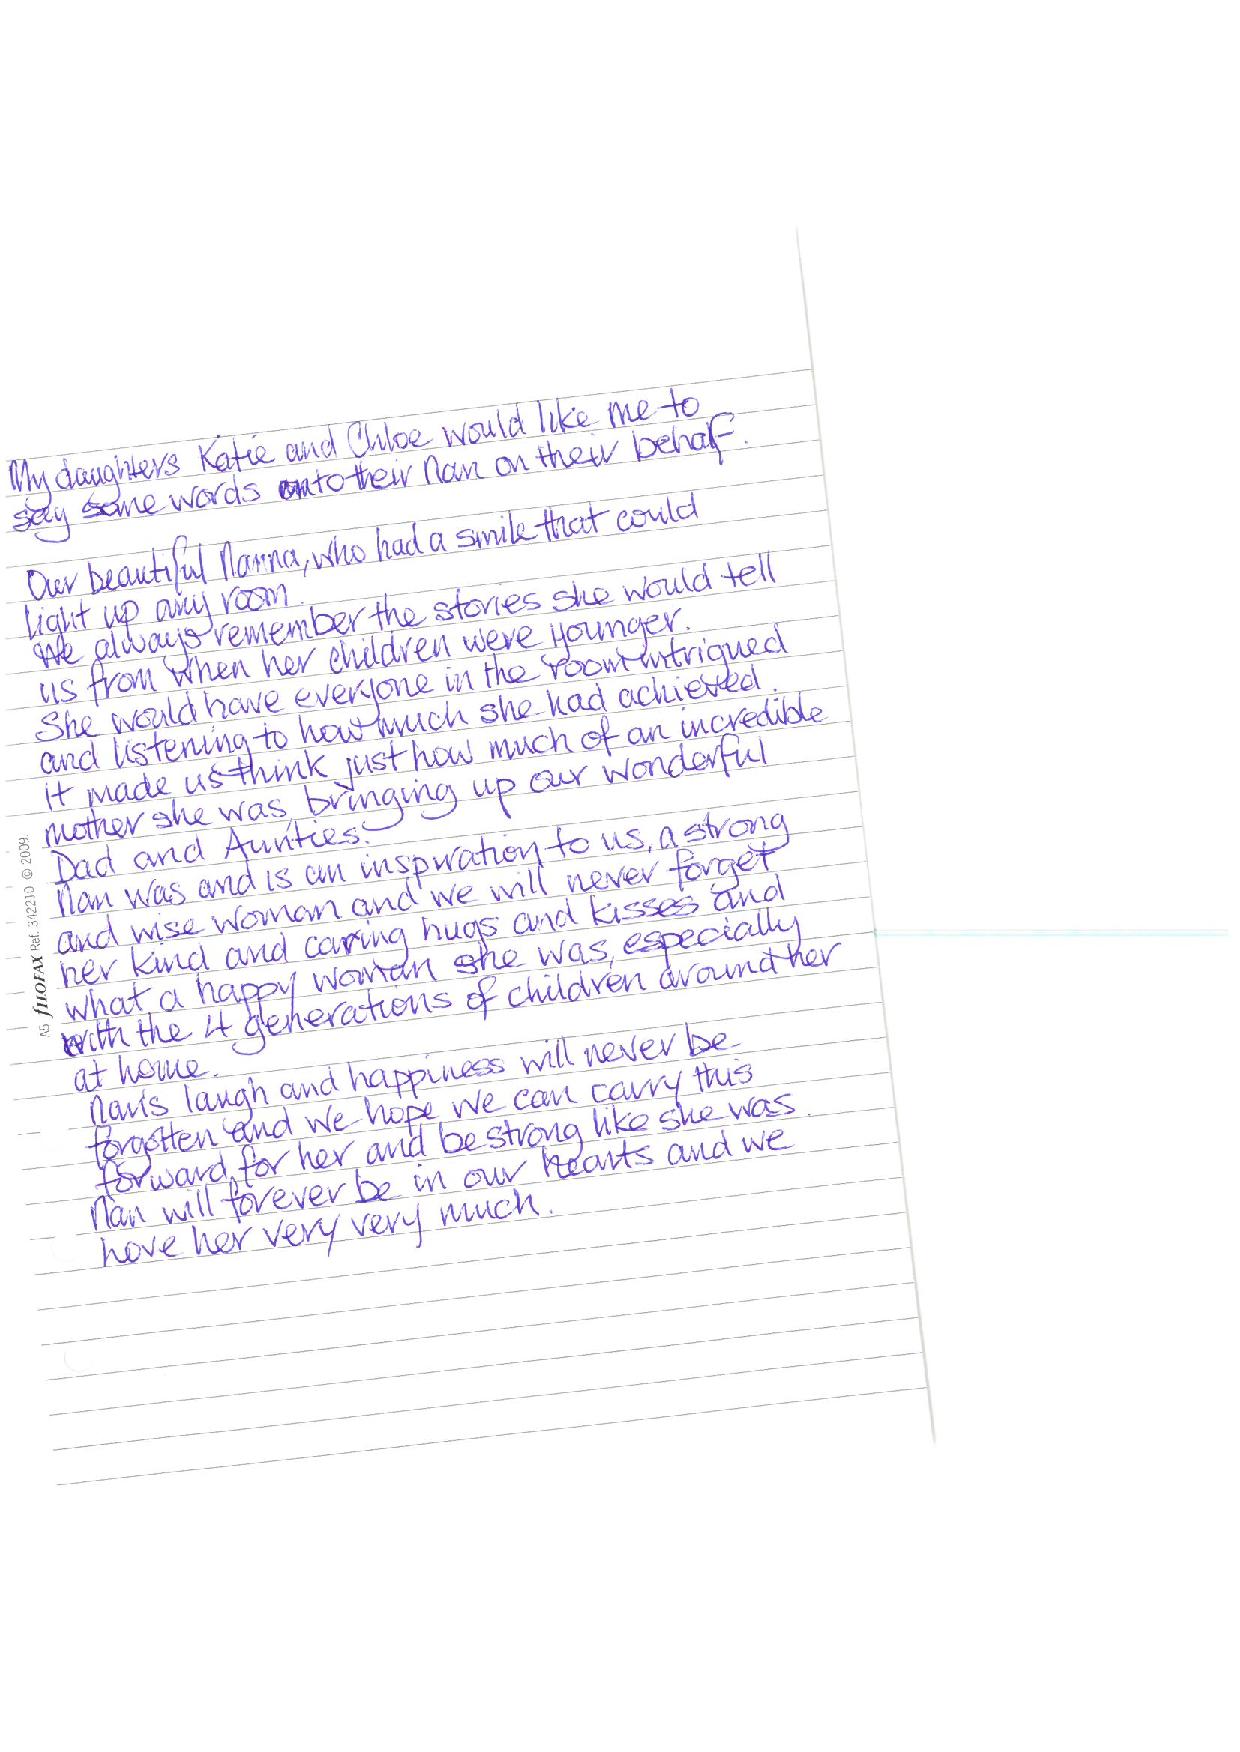 My daughters Katie and Chloe would like me to
say some words onto their Nan on their behalf.
Our beautiful Nanna, who had a smile that could
light up any room.
We always remember the stories she would tell
us from when her children were younger.
She would have everyone in the room intrigued
and listening to how much she had achieved.
It made us think just how much of an incredible
mother she was, bringing up our wonderful
Dad and Aunties.
Nan was and is an inspiration to us, a strong
and wise woman and we will never forget
her kind and caring hugs and kisses and
what a happy woman she was, especially
with the 4 generations of children around her
at home.
Nan's laugh and happiness will never be
forgotten and we hope we can carry this
forward for her and be strong like she was.
Nan will forever be in our hearts and we
love her very very much.
A5 fILOFAX Ref. 342210 © 2009.